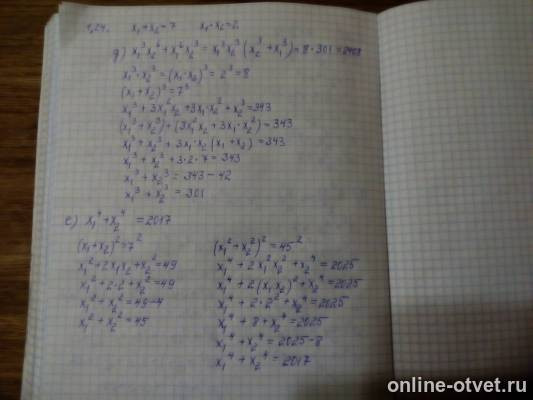 1,24. x₁+x₂=7 x₁·x₂=2.
g) x₁³x₂⁶+x₁⁶x₂³=x₁³x₂³(x₂³+x₁³)=8·301=2408
x₁³·x₂³=(x₁·x₂)³=2³=8
(x₁+x₂)³=7³
x₁³+3x₁²x₂+3x₁·x₂²+x₂³=343
(x₁³+x₂³)+(3x₁²x₂+3x₁·x₂²)=343
x₁³+x₂³+3x₁·x₂(x₁+x₂)=343
x₁³+x₂³+3·2·7=343
x₁³+x₂³=343-42
x₁³+x₂³=301
e) x₁⁴+x₂⁴=2017
(x₁+x₂)²=7²
x₁²+2x₁x₂+x₂²=49
x₁²+2·2+x₂²=49
x₁²+x₂²=49-4
x₁²+x₂²=45
(x₁²+x₂²)²=45²
x₁⁴+2x₁²x₂²+x₂⁴=2025
x₁⁴+2(x₁x₂)²+x₂⁴=2025
x₁⁴+2·2²+x₂⁴=2025
x₁⁴+8+x₂⁴=2025
x₁⁴+x₂⁴=2025-8
x₁⁴+x₂⁴=2017
online-otvet.ru